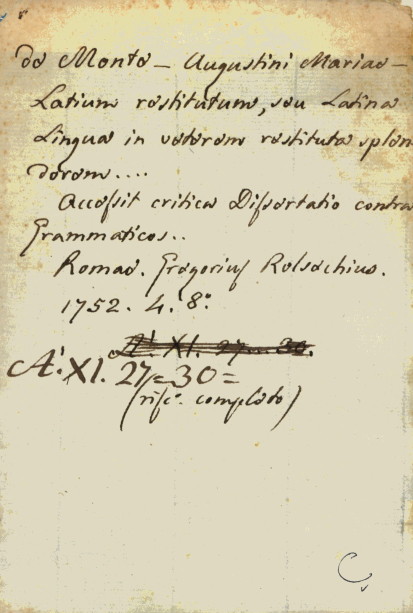 de Monte – Augustini Mariae –
Latium restitutum, seu Latina
Lingua in veterem restituta splen
dorem....
Accessit critica Dissertatio contra
Grammaticos..
Romae. Gregorius Roisechius.
1752. 4. 8°.
A'. XI. 27–30.
A'. XI. 27=30=
(rifc. completo)
C